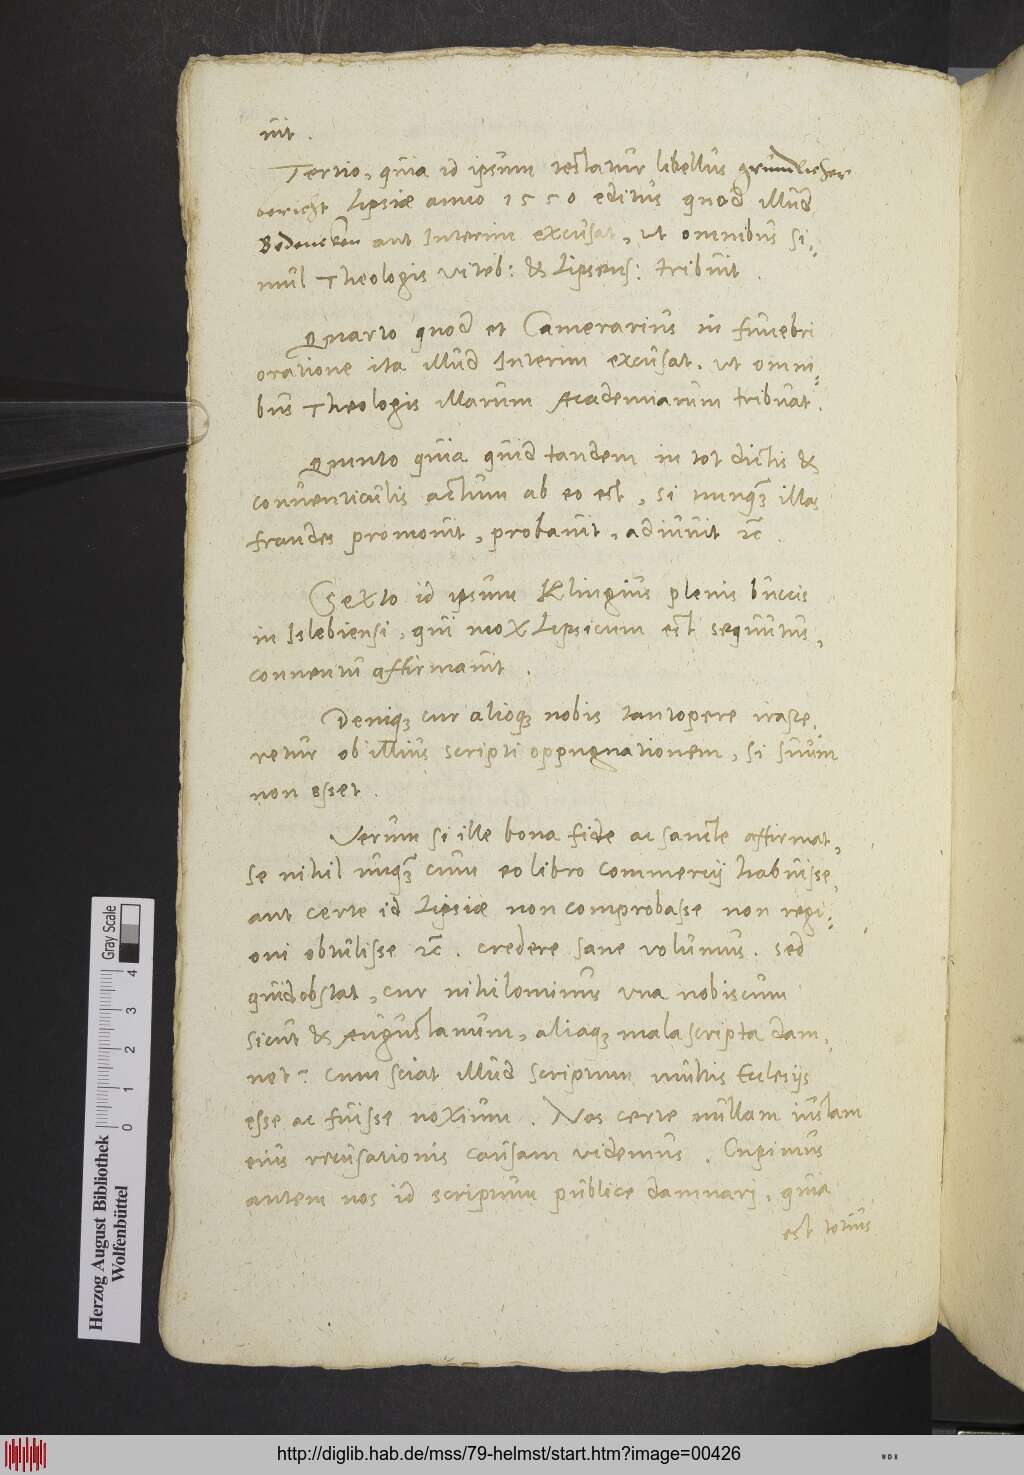 nit.
Tertio, quia id ipsum testatur libellus gründlicher
bericht Lipsiæ anno 1550 editus quod illud
Bedencken aut Interim excusat, ut omnibus si-
mul Theologis Viteb: & Lipsens: tribuit.
Quarto quod et Camerarius in funebri
oratione ita illud Interim excusat. ut omni-
bus Theologis illarum Academiarum tribuat.
Quinto quia quid tandem in tot dictis &
conventiculis actum ab eo est, si nunqȝ illas
fraudes promovit, probavit, adiuvit ꝛc.
Sexto id ipsum Klingius plenis buccis
in Islebiensi, qui mox Lipsicum est sequutus,
conventu affirmavit.
Deniqȝ cur alioqȝ nobis tantopere irasce-
retur ob illius scripti oppugnationem, si suum
non esset.
Verum si ille bona fide ac sancte affirmat,
se nihil unqȝ cum eo libro commercij habuisse,
aut certe id Lipsiæ non comprobasse non regi-
oni obtulisse ꝛc. credere sane volumus. sed
quid obstat, cur nihilominus una nobiscum
sicut & Augustanum, aliaqȝ mala scripta dam-
net? cum sciat illud scriptum multis Ecclesijs
esse ac fuisse noxium. Nos certe nullam iustam
eius recusationis causam videmus. Cupimus
autem nos id scriptum publice damnari, quia
est totius
Herzog August Bibliothek
Wolfenbüttel
0 1 2 3 4
Gray Scale
http://diglib.hab.de/mss/79-helmst/start.htm?image=00426
WDB